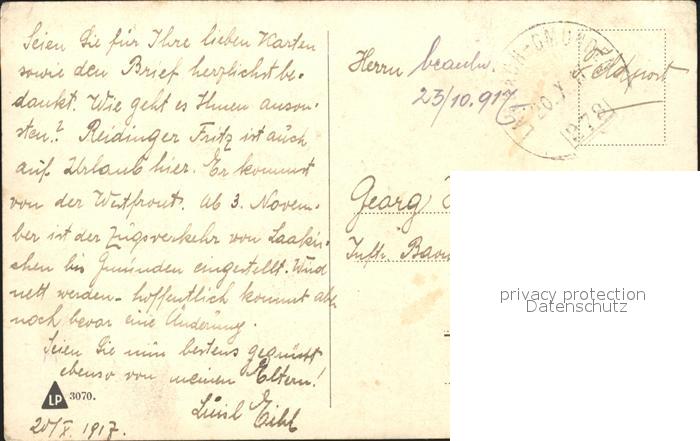 Seien Sie für Ihre lieben Karten
sowie den Brief herzlichst be-
dankt. Wie geht es Ihnen anson-
sten? Reidinger Fritz ist auch
auf Urlaub hier. Er kommt
von der Westfront. Ab 3. Novem-
ber ist der Zugsverkehr von Laakir-
chen bis Gmunden eingestellt. Wird
nett werden - hoffentlich kommt aber
noch bevor eine Änderung.
Seien Sie nun bestens gegrüsst
ebenso von meinen Eltern!
Liesl
20/X. 1917.
LP 3070.
Herrn
23/10. 917
GMUNDEN
20. X
Feldpost
Georg
Inftr.
privacy protection
Datenschutz